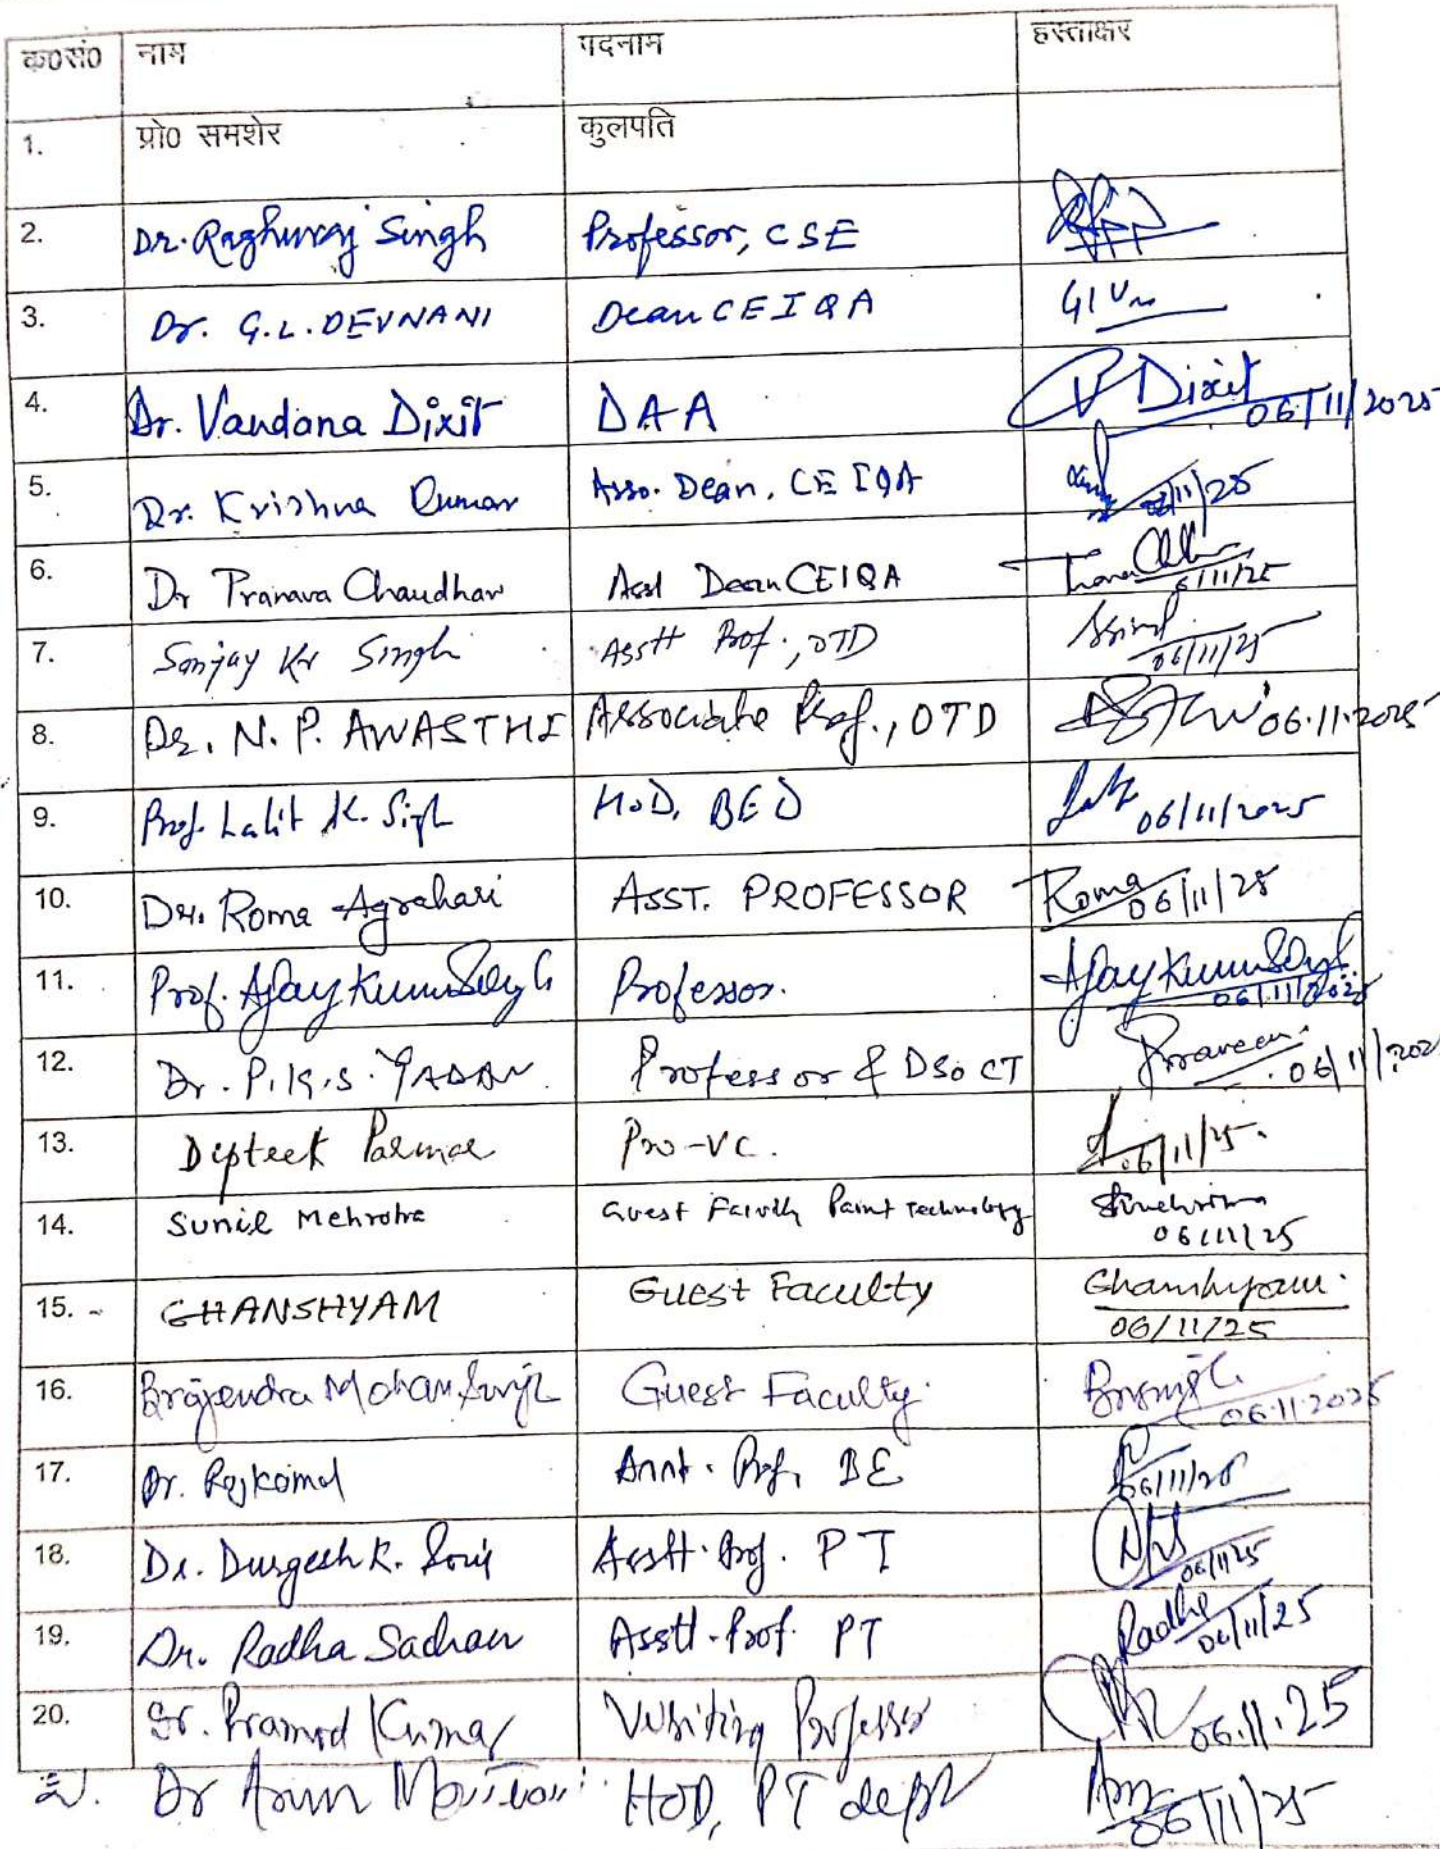 क0सं0 नाम पदनाम हस्ताक्षर
1. प्रो0 समशेर कुलपति
2. Dr. Raghuraj Singh Professor, CSE
3. Dr. G.L. DEVNANI Dean CEIQA
4. Dr. Vandana Dixit DAA V Dixit 06/11/2025
5. Dr. Krishna Kumar Asso. Dean, CE IQA
6. Dr Pranava Chaudhari Asst Dean CEIQA 6/11/25
7. Sanjay Kr Singh Asstt Prof., OTD 06/11/25
8. Dr. N. P. AWASTHI Associate Prof., OTD 06.11.2025
9. Prof. Lalit K. Singh H.O.D, BED 06/11/2025
10. Dr. Roma Agrahari ASST. PROFESSOR Roma 06/11/25
11. Prof. Ajay Kumar Singh Professor. Ajay Kumar Singh 06/11/2025
12. Dr. P.K.S. YADAV Professor & DSoCT Praveen 06/11/202
13. Dipteek Parmar Pro-VC. 06/11/25.
14. Sunil Mehrotra Guest Faculty Paint Technology
06/11/25
15. GHANSHYAM Guest Faculty Ghanshyam.
06/11/25
16. Brajendra Mohan Singh Guest Faculty. 06.11.2025
17. Dr. Rajkamal Asst. Prof, BE 06/11/25
18. Dr. Durgesh K. Soni Asstt. Prof. PT 06/11/25
19. Dr. Radha Sachan Asstt. Prof. PT Radha 06/11/25
20. Dr. Pramod Kumar Visiting Professor 06.11.25
Dr Arun HOD, PT deptt 06/11/25